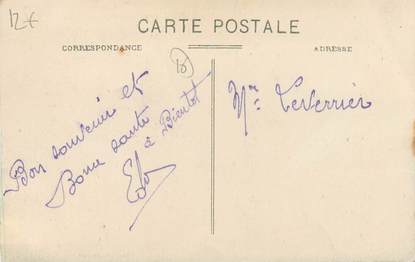 12€
CARTE POSTALE
CORRESPONDANCE
ADRESSE
Bon souvenir et
Bonne santé
à Bientot
Mr. Leverrier